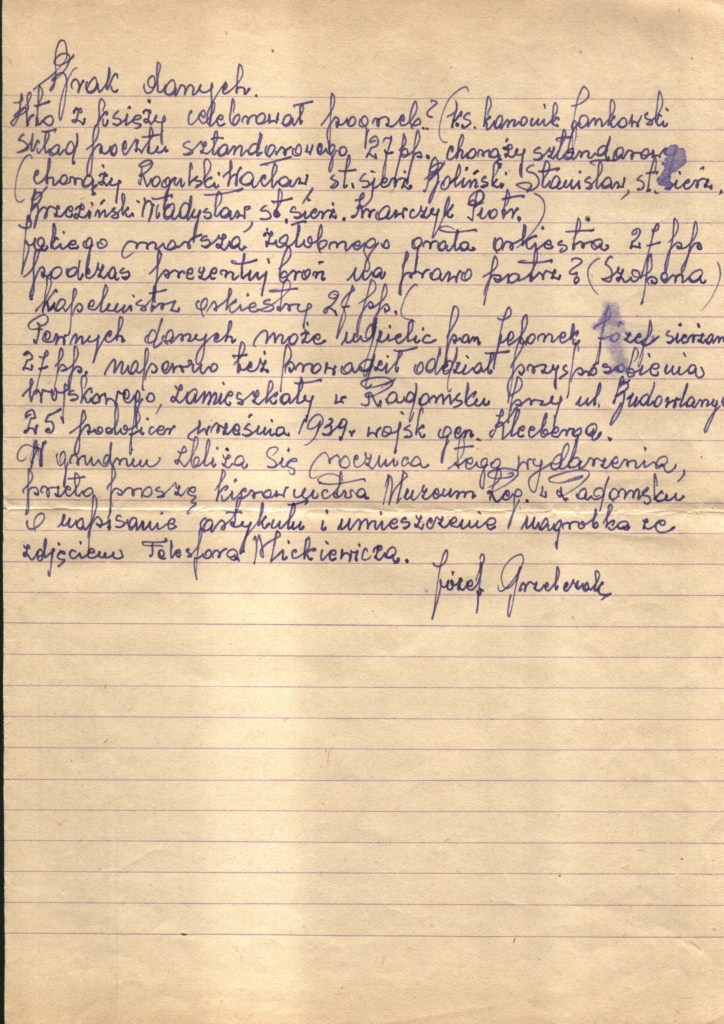 Brak danych.
Kto z księży celebrował pogrzeb? (ks. kanonik Jankowski
skład pocztu sztandarowego 27 pp. chorąży sztandarowy
(chorąży Rogulski Wacław, st. sierż. Koliński Stanisław, st. sierż.
Brzeziński Władysław, st. sierż. Krawczyk Piotr.)
Jakiego marsza żałobnego grała orkiestra 27 pp
podczas prezentuj broń na prawo patrz? (Szopena)
kapelmistrz orkiestry 27 pp. (
Pewnych danych może udzielić pan Jefonek Józef sierżan
27 pp. napewno też prowadził oddział przysposobienia
Wojskowego, zamieszkały w Radomsku przy ul. Budowlanych
25 podoficer września 1939 r wojsk gen. Kleeberga.
W grudniu zbliża się rocznica tego wydarzenia,
przeto proszę kierownictwa Muzeum Reg. w Radomsku
o napisanie artykułu i umieszczenie nagrobka ze
zdjęciem Telesfora Mickiewicza.
Józef Grzebczak